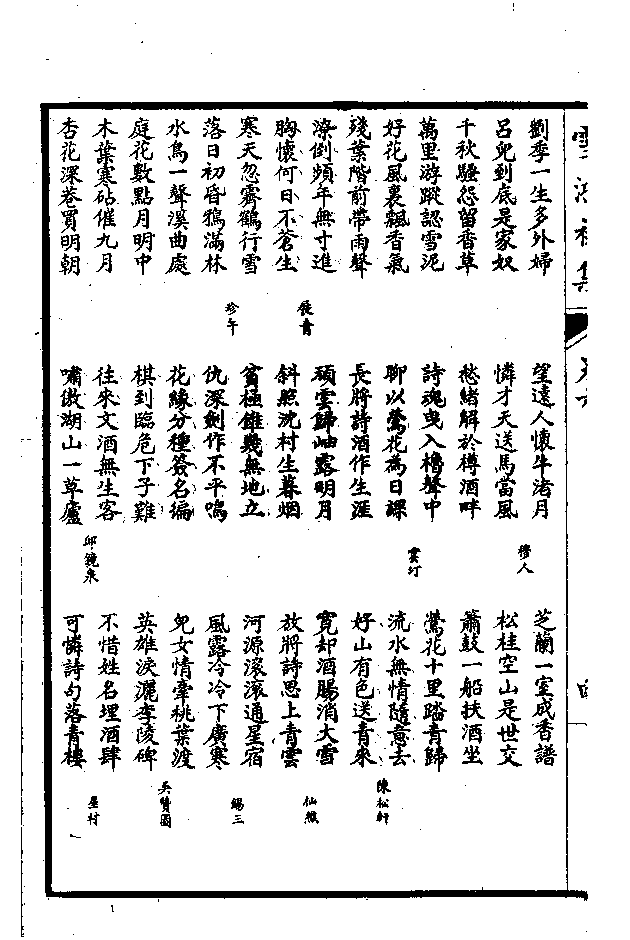 雪鴻初集
卷六
四
劉季一生多外婦
呂兒到底是家奴
千秋騷怨留香草
萬里游蹤認雪泥
好花風裏飄香氣
殘葉階前帶雨聲
潦倒頻年無寸進
胸懷何日不蒼生
寒天忽霽鶴行雪
落日初昏鴉滿林
珍午
水鳥一聲溪曲處
庭花數點月明中
木葉寒砧催九月
杏花深巷買明朝
望遠人懷牛渚月
憐才天送馬當風
穆人
愁緒解於樽酒畔
詩魂曳入櫓聲中
雲汀
聊以鶯花為日課
長將詩酒作生涯
頑雲歸岫露明月
斜照沈村生暮烟
貧極錐幾無地立
仇深劍作不平鳴
花緣分種簽名徧
棋到臨危下子難
往來文酒無生客
嘯傲湖山一草廬
邱鏡泉
芝蘭一室成香譜
松桂空山是世交
簫鼓一船扶酒坐
鶯花十里踏青歸
流水無情隨意去
好山有色送青來
陳松軒
寬却酒腸消大雪
放將詩思上青雲
仙
河源滾滾通星宿
風露冷冷下廣寒
錫三
兒女情牽桃葉渡
英雄淚灑李陵碑
吳贊圖
不惜姓名埋酒肆
可憐詩句落青樓
星村